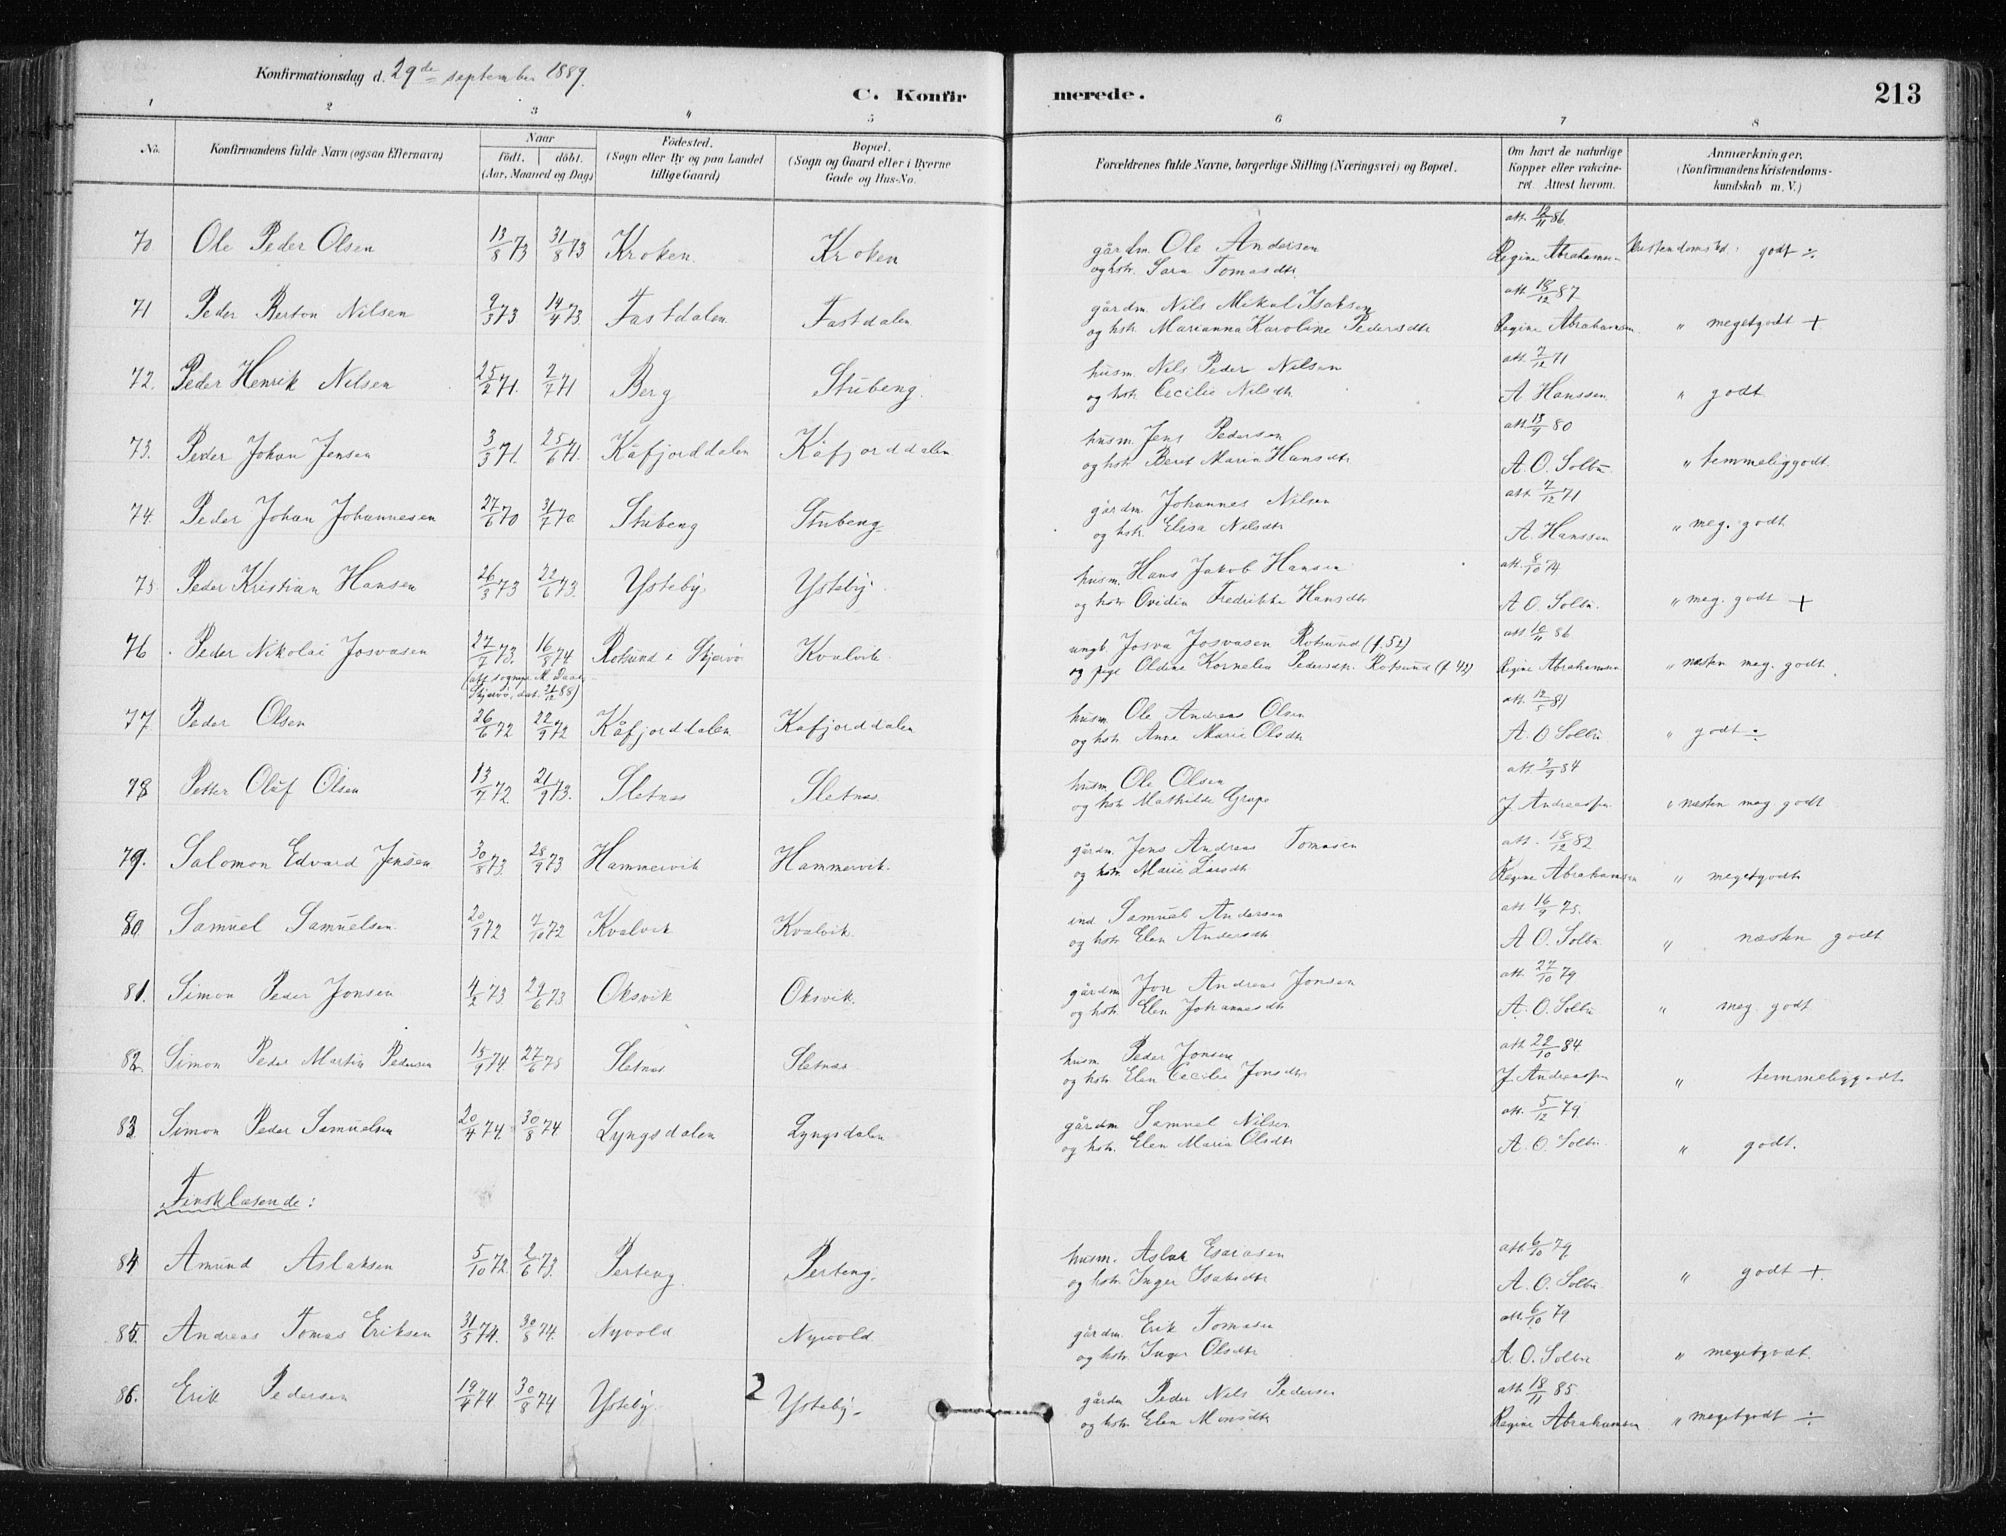 Konfirmationsdag d. 29de september 1889.
C. Konfir merede. 213
1 2 3 4 5 6 7 8
No. Konfirmandens fulde Navn (ogsaa Efternavn) Naar födt. döbt. (Aar, Maaned og Dag) Födested. (Sogn eller By og paa Landet tillige Gaard) Bopæl. (Sogn og Gaard eller i Byerne Gade og Hus-No. Forældrenes fulde Navne, borgerlige Stilling (Næringsvei) og Bopæl. Om havt de naturlige Kopper eller vakcineret. Attest herom. Anmærkninger. (Konfirmandens Kristendomskundskab m. V.)
70 Ole Peder Olsen 13/8 73 31/8 73 Kroken Kroken gårdm. Ole Andersen att. 12/11 86
og hstr. Sara Tomasdtr. Regine Abrahamsen kristendomskd: godt ÷
71 Peder Berton Nilsen 9/3 73 14/4 73 Fastdalen Fastdalen gårdm. Nils Mikal Isaksen att. 18/12 87
og hstr. Marianna Karoline Pedersdtr Regine Abrahamsen " megetgodt +
72. Peder Henrik Nilsen 25/2 71. 2/7 71 Berg Stubeng husm. Nils Peder Nilsen att. 7/12 71
og hstr. Cecilie Nilsdtr A Hanssen " godt
73. Peder Johan Jensen 3/3 71. 25/6 71. Kåfjorddalen Kåfjorddalen husm. Jens Pedersen att. 13/9 80
og hstr. Beret Maria Hansdtr A. O. Solbu " temmeliggodt.
74. Peder Johan Johannesen 27/6 70 31/7 70 Stubeng Stubeng gårdm. Johannes Nilsen att. 7/12 71
og hstr. Elisa Nilsdtr A. Hanssen " meg. godt
75 Peder Kristian Hansen 26/3 73 22/6 73. Ysteby. Ysteby. husm. Hans Jakob Hansen att. 6/10 74
og hstr Ovidia Fredrikke Hansdtr A O. Solbu. " meg. godt +
76 Peder Nikolai Josvasen 27/7 73. 16/8 74 Rotsund i Skjervö Kvalvik ungk. Josva Josvasen Rotsund (f. 52) att 10/11 86
(att sognepr. M. Daae, Skjervö, dat. 21/12 88) og pige Oldine Kornelia Pedersdtr. Rotsund (f 42) Regine Abrahamsen " næsten meg. godt.
77 Peder Olsen 26/6 72 22/9 72 Kåfjorddalen Kåfjorddalen husm Ole Andreas Olsen att. 12/5 81
og hstr Anne Marie Olsdtr A. O Solbu " godt ÷
78 Petter Oluf Olsen 13/7 72 21/9 73. Sletnes Sletnes husm Ole Olsen att. 7/9 84
og hstr. Mathilde Grape J. Andreassen " næsten meg godt
79. Salomon Edvard Jensen 30/8 73 28/9 73 Hammervik Hammervik. gårdm. Jens Andreas Tomasen att. 18/12 82
og hstr Marie Larsdtr Regine Abrahamsen " megetgodt
80 Samuel Samuelsen 20/9 72 7/10 72 Kvalvik Kvalvik ind Samuel Andersen att 16/9 75.
og hstr. Elen Andersdtr A O. Solbu " næsten godt
81. Simon Peder Jonsen 4/2 73 29/6 73 Oksvik Oksvik. gårdm Jon Andreas Jonsen att. 27/10 79
og hstr. Elen Johannesdtr A. O. Solbu " meg. godt
82. Simon Peder Martin Pedersen 15/9 74 27/6 75 Sletnes Sletnes husm Peder Jonsen att 22/10 84.
og hstr. Elen Cecilie Jonsdtr J. Andreassen " temmeliggodt
83 Simon Peder Samuelsen 20/4 74. 30/8 74 Lyngsdalen Lyngsdalen gårdm Samuel Nilsen att. 5/12 79.
og hstr. Elen Maria Olsdtr A. O. Solbu. " godt.
Finsklæsende:
84 Amund Aslaksen 5/10 72. 2/6 73. Perteng Perteng. husm. Aslak Esaiasen att 6/10 79.
og hstr. Inger Isaksdtr A. O. Solbu " godt +.
85. Andreas Tomas Eriksen 31/5 74. 30/8 74. Nyvold Nyvold gårdm Erik Tomasen att. 6/10 79
og hstr. Inger Olsdtr A. O. Solbu " megetgodt.
86. Erik Pedersen 19/4 74 30/8 74 Ysteby. 2 Ysteby. gårdm Peder Nils Pedersen att 18/11 85.
og hstr. Elen Monsdtr Regine Abrahamsen " megetgodt ÷